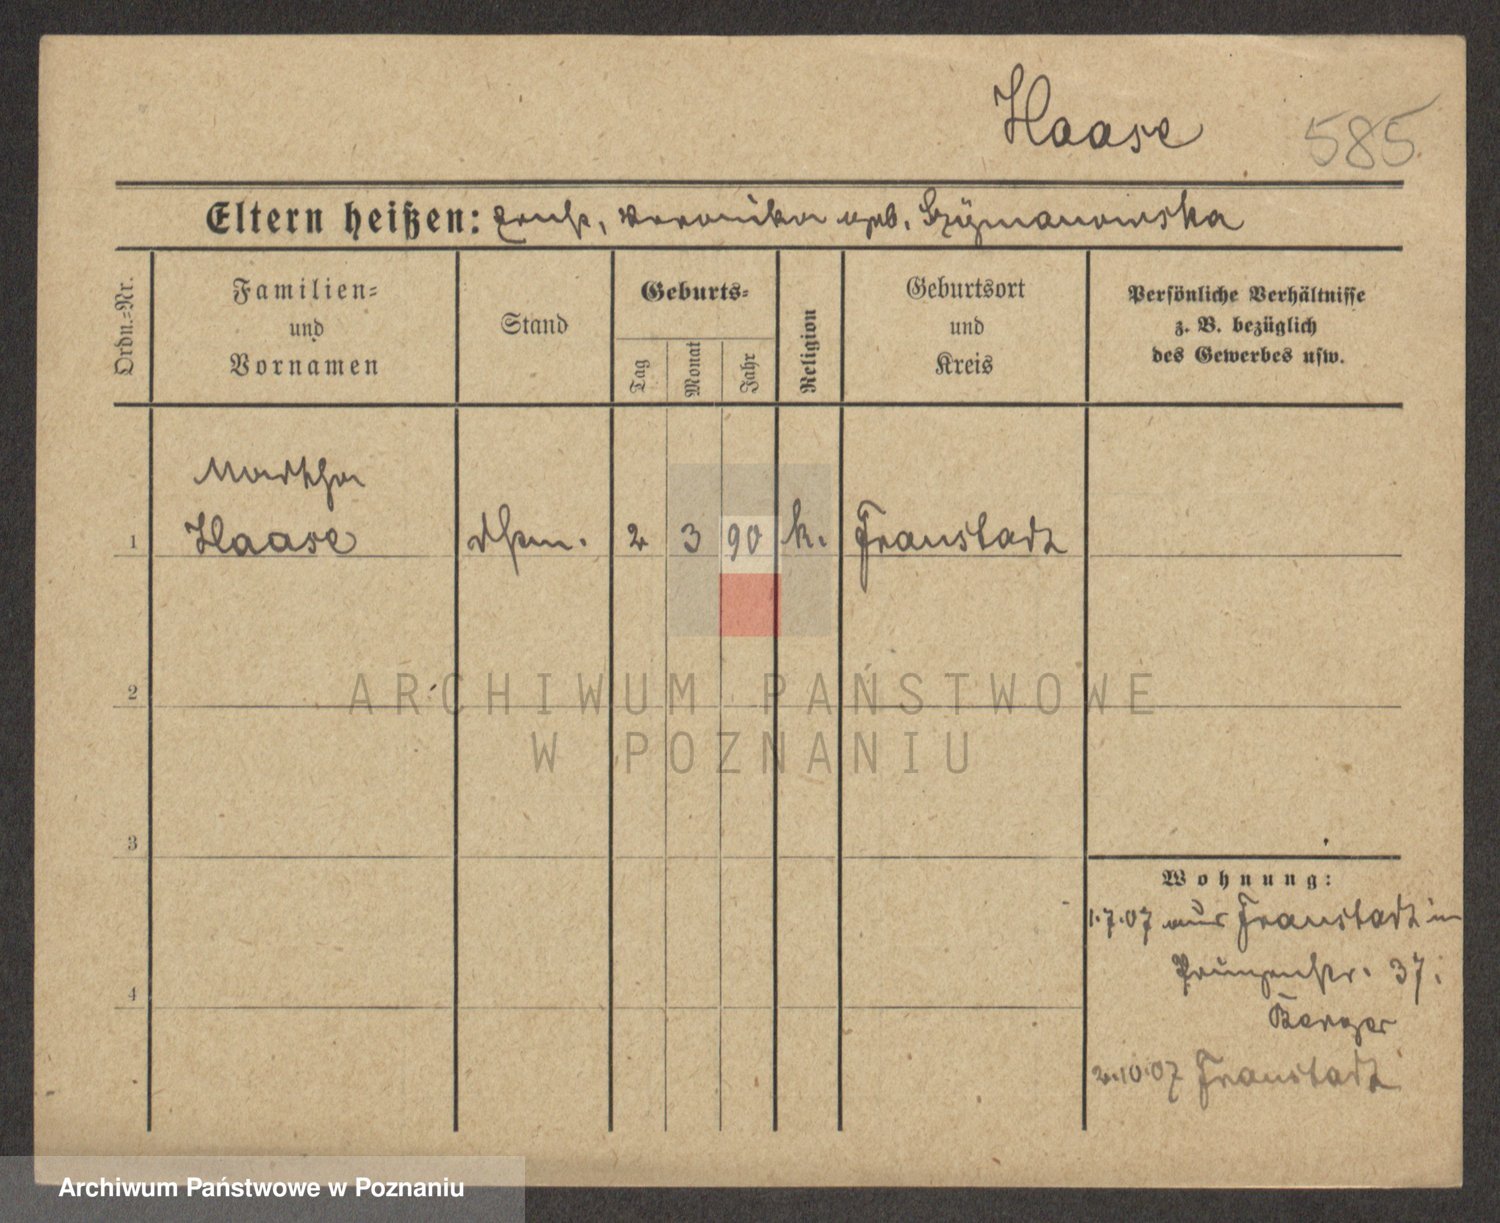 Haase 585
Eltern heißen: Ernst, Veronika geb. Szymanowska
Ordn.-Nr.
Familien-
und
Vornamen
Stand
Geburts-
Tag
Monat
Jahr
Religion
Geburtsort
und
Kreis
Persönliche Verhältnisse
z. B. bezüglich
des Gewerbes usw.
Martha
1 Haase 2 3 90 k. Fraustadt
2
ARCHIWUM PAŃSTWOWE
W POZNANIU
3
Wohnung:
1.7.07 aus Fraustadt in
37.
4
Berger
2.10.07 Fraustadt
Archiwum Państwowe w Poznaniu